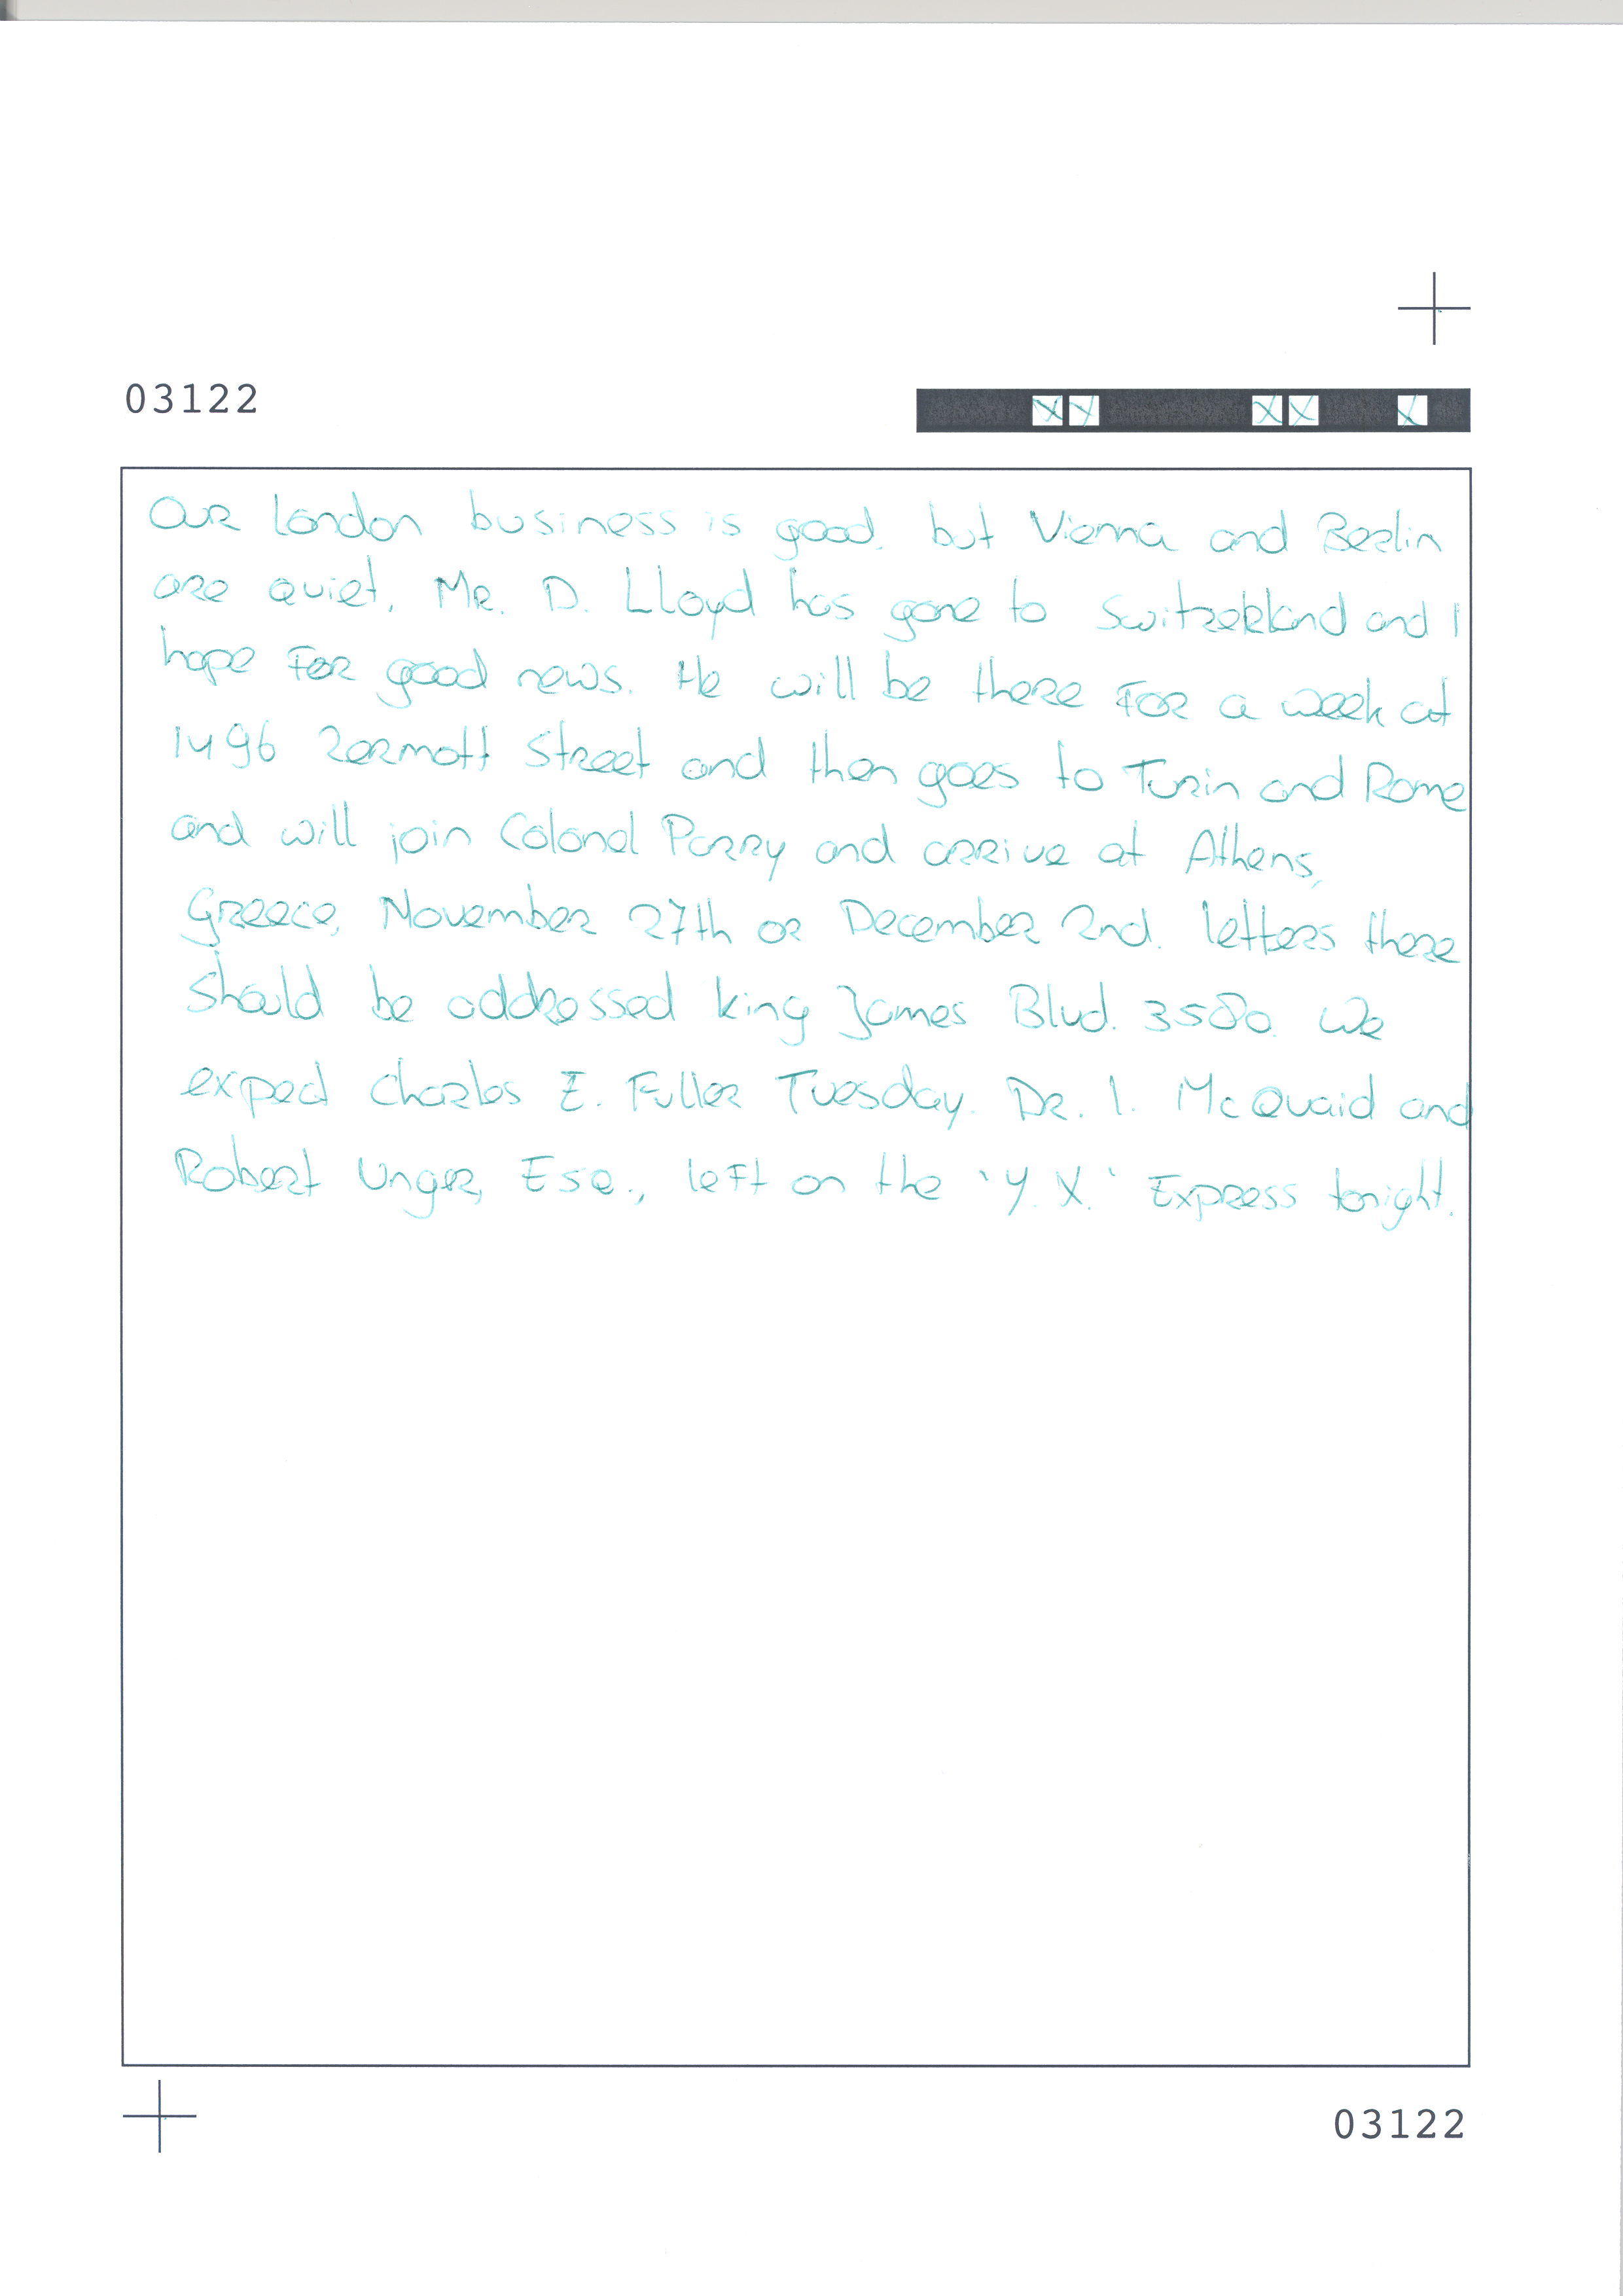 03122
Our London business is good, but Vienna and Berlin
are quiet. Mr. D. Lloyd has gone to Switzerland and I
hope for good news. He will be there for a week at
1496 Zermott Street and then goes to Turin and Rome
and will join Colonel Parry and arrive at Athens,
Greece, November 27th or December 2nd. Letters there
should be addressed king James Blvd. 3580. We
expect Charles E. Fuller Tuesday. Dr. I. McQuaid and
Robert Unger, Esq., left on the 'Y.X.' Express tonight.
03122